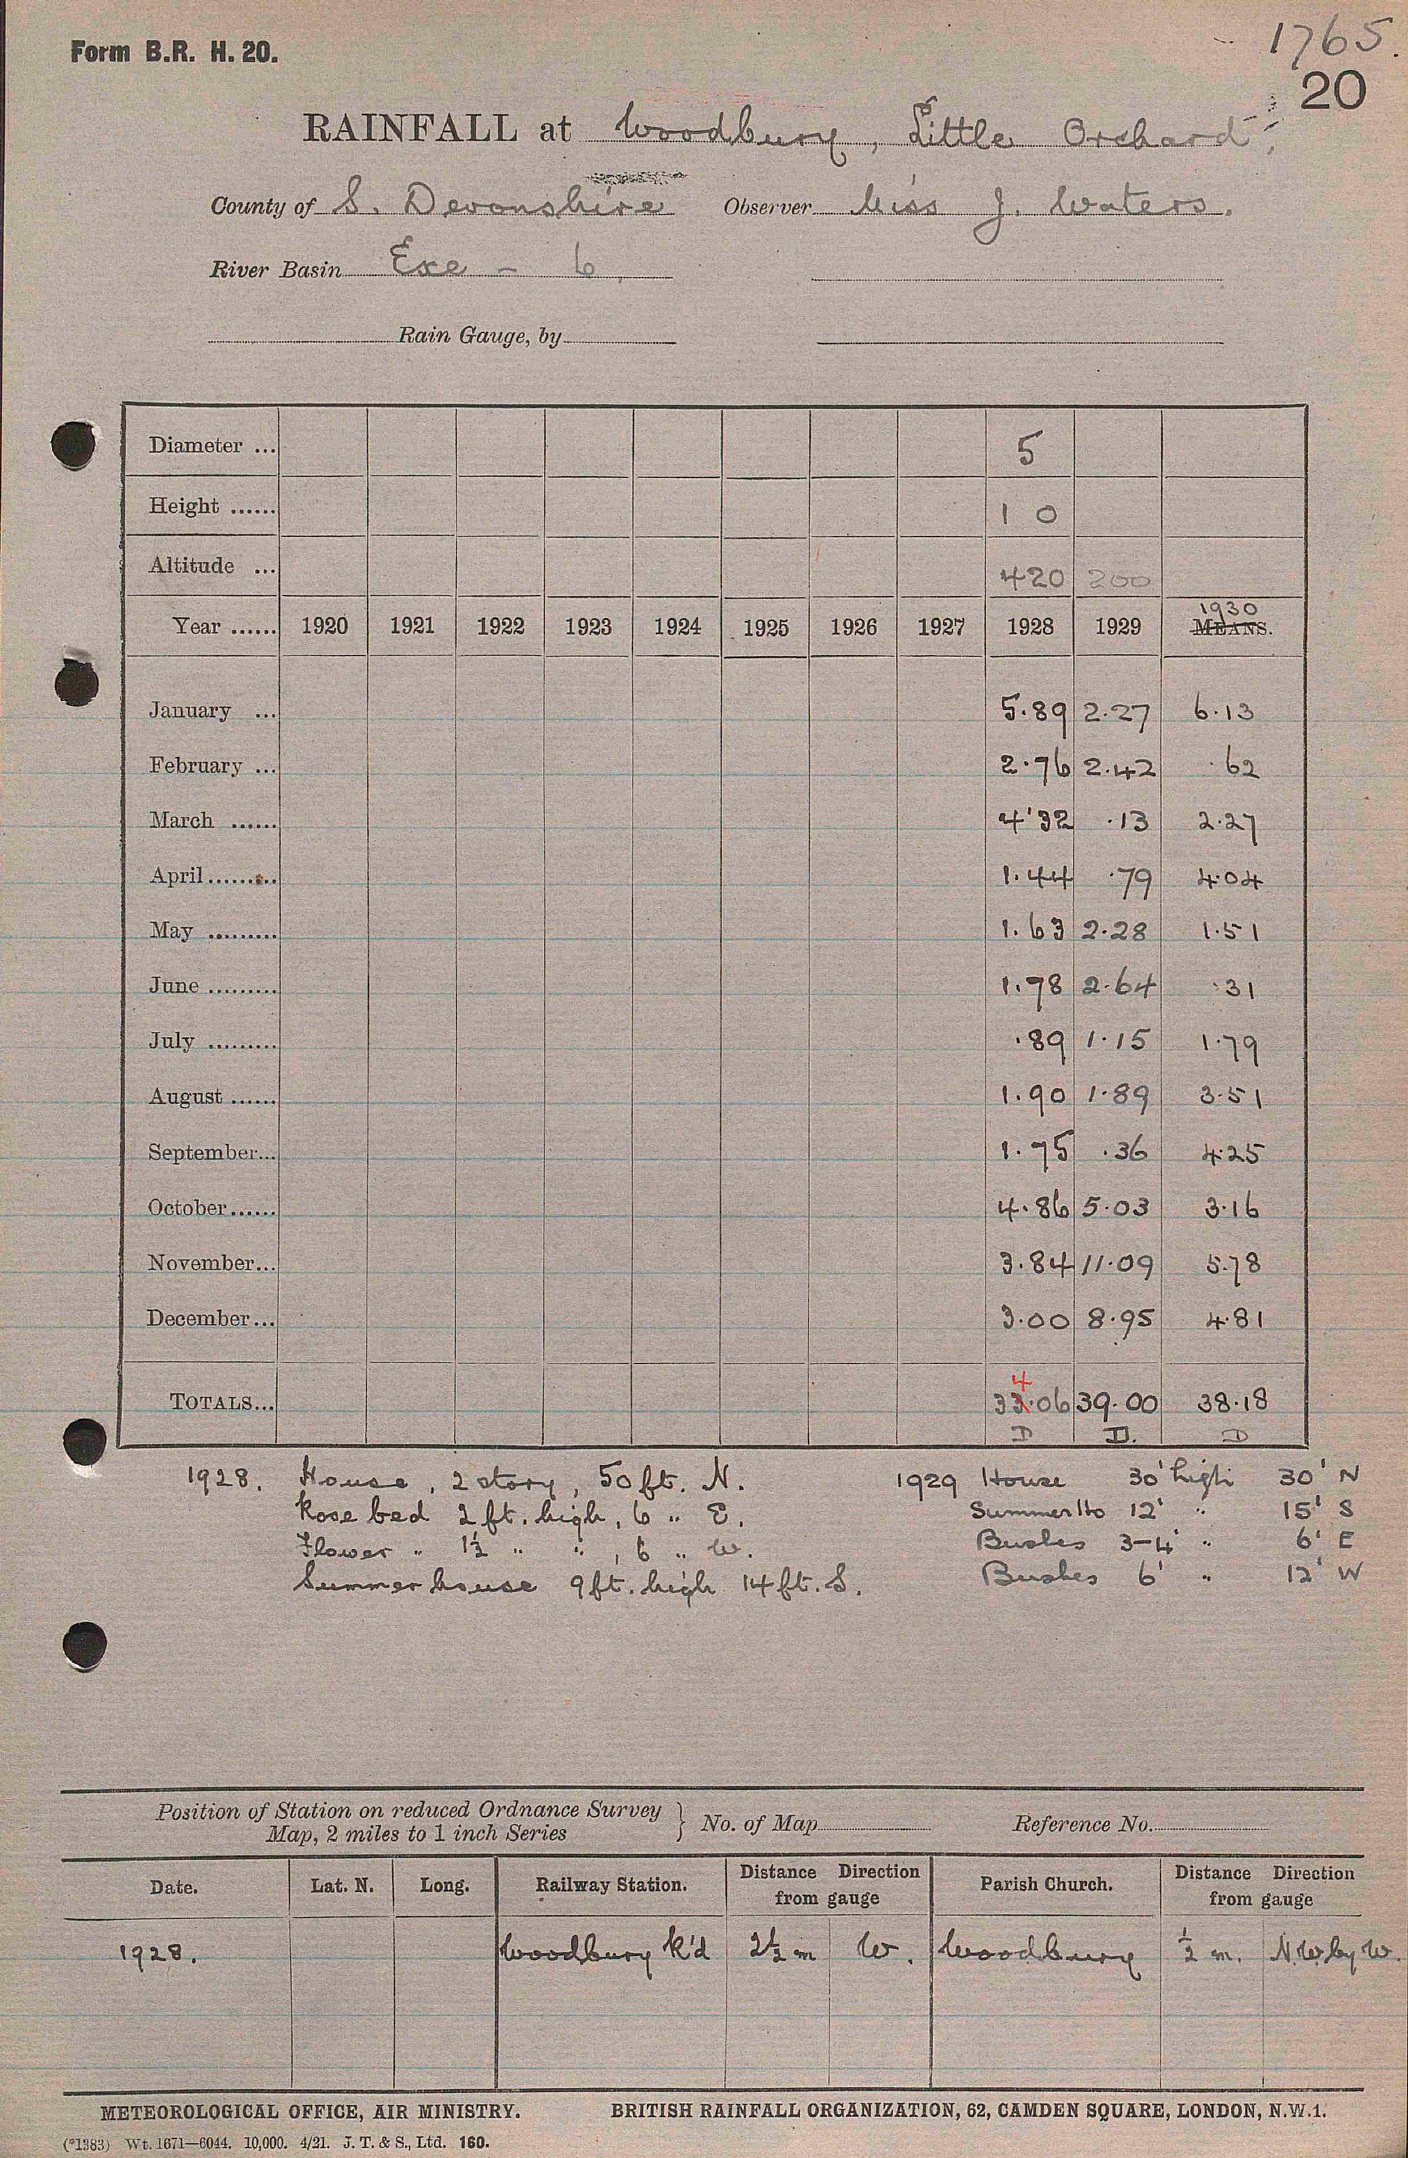 Form B.R. H. 20.
1765.
20
RAINFALL at Woodbury, Little Orchard,
County of S. Devonshire Observer Miss J. Waters.
River Basin Exe - 6
Rain Gauge, by
Diameter ... 5
Height ...... 1 0
Altitude ... 420 200
Year ...... 1920 1921 1922 1923 1924 1925 1926 1927 1928 1929 1930 MEANS.
January ... 5.89 2.27 6.13
February ... 2.76 2.42 .62
March ...... 4.32 .13 2.27
April ......... 1.44 .79 4.04
May ......... 1.63 2.28 1.51
June ......... 1.78 2.64 .31
July ......... .89 1.15 1.79
August ...... 1.90 1.89 3.51
September... 1.75 .36 4.25
October...... 4.86 5.03 3.16
November... 3.84 11.09 5.78
December... 3.00 8.95 4.81
4
TOTALS... 33.06 39.00 38.18
D D. D
1928. House, 2 story, 50 ft. N. 1929 House 30' high 30' N
Rose bed 2 ft. high, 6 " E. Summer Ho 12' " 15' S
Flower " 1½ " ", 6 " W. Bushes 3-4' " 6' E
Summer house 9 ft. high 14 ft. S. Bushes 6' " 12' W
Position of Station on reduced Ordnance Survey
Map, 2 miles to 1 inch Series } No. of Map Reference No.
Date. Lat. N. Long. Railway Station. Distance Direction from gauge Parish Church. Distance Direction from gauge
1928. Woodbury R'd 2½ m W. Woodbury ½ m. N.W. by W.
METEOROLOGICAL OFFICE, AIR MINISTRY. BRITISH RAINFALL ORGANIZATION, 62, CAMDEN SQUARE, LONDON, N.W.1.
(*1383) Wt. 1671—6044. 10,000. 4/21. J. T. & S., Ltd. 160.